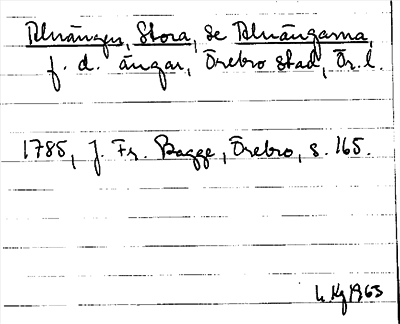 Alnängen, Stora, se Alnängarna,
f. d. ängar, Örebro stad, Ör. l.
1785, J. Fr. Bagge, Örebro, s. 165.
1963